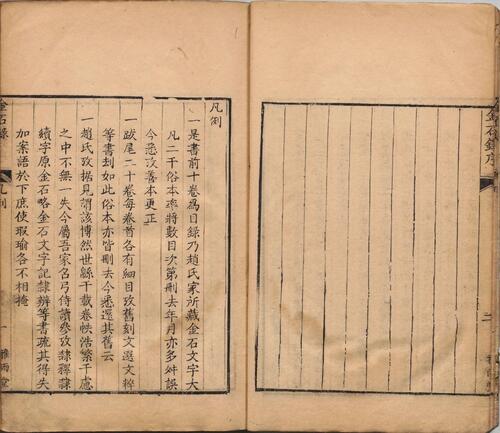 金石錄序
二
凡例
一是書前十卷為目錄乃趙氏家所藏金石文字大
凡二千俗本率將數目次第刪去年月亦多舛誤
今悉善本更正
一跋尾二十卷每卷首各有細目攷舊刻文選文粹
等書刻如此俗本亦皆刪去今悉還其舊云
一趙氏攷據見謂該博然世緜千載卷帙浩繁千慮
之中不無一失今屬吾家召弓侍讀參攷隸釋隸
續字原金石略金石文字記隸辨等書疏其得失
加案語於下庶使瑕瑜各不相掩
金石錄
凡例
一
雅雨堂